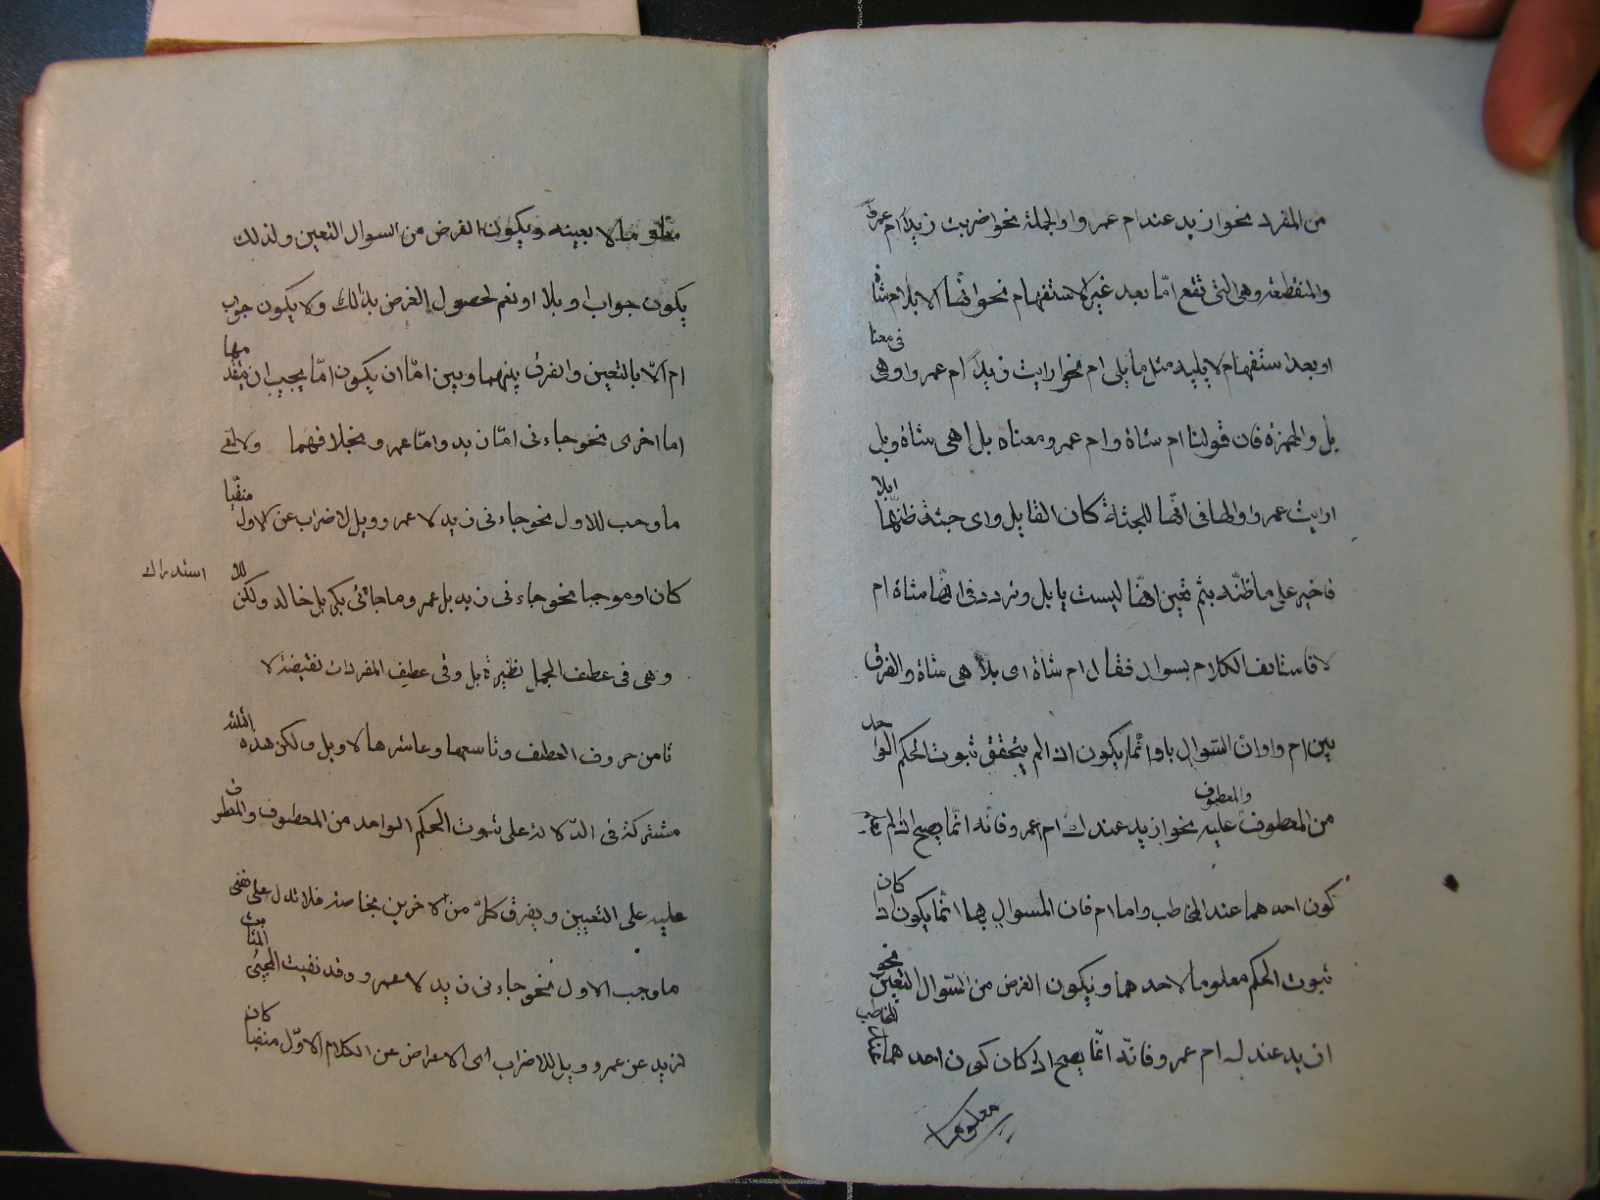 من المفرد نحو ازيد عندك ام عمرو او الجملة نحو اضربت زيدا ام عمرا
والمنقطعة وهى التى تقع امّا بعد غير الاستفهام نحو انّها لابل ام شاة
او بعد استفهام لا يليه مثل ما يلى ام نحو ارايت زيداً ام عمروا وهى
فى معنا
بل والهمزة فان قولنا ام شاة وام عمرو معناه بل اهى شاة وبل
ارايت عمروا والها فى انّها للجثة كان القايل راى جثة ظنّها
ابلا
فاخبر على ما ظنّه ثم تعين انّها ليست بابل وتردد فى انّها شاة ام
لا فاستانف الكلام بسوال فقال ام شاة اى بل اهى شاة والفرق
بين ام واو ان السّوال باو انّما يكون اذا لم يتحقق ثبوت الحكم الوا
حد
من المعطوف عليه نحو ازيد عندك ام عمرو فانّه انّما يصح اذا لم
والمعطوف
كون احدهما عند المخاطب واما ام فان المسوال بها انّما يكون اذ
كان
ثبوت الحكم معلوما لاحدهما ويكون الغرض من السّوال التعين
نحو
ازيد عندك ام عمرو فانّه انّما يصح اذ كان كون احدهما
المخاطب
معلوما
معلوما لا بعينه ويكون الغرض من السوال التعين ولذلك
يكون جواب او بلا او نعم لحصول الغرض بذالك ولا يكون جوب
ام الّا بالتعين والفرق بينهما وبين امّا ان يكون امّا يجب ان يتقد
مها
اما اخرى نحو جاءنى امّا زيد وامّا عمرو بخلافهما ولا لنفى
ما وجب للاول نحو جاءنى زيد لا عمرو وبل للاضراب عن الاول
منفيا
كان او موجبا نحو جاءنى زيد بل عمرو وما جاءنى بكر بل خالد ولكن
للا
استدراك
وهى فى عطف الجمل نظيرة بل وفى عطف المفردات نقيضة لا
ثامن حروف العطف وتاسعها وعاشرها لا وبل ولكن هذه
الثلثة
مشتركة فى الدّلالة على ثبوت الحكم الواحد من المعطوف والمعطو
ف
عليه على التعيين ويفرق كلّ من الاخرين بخاصة فلا تدل على نفى
ما وجب الاول نحو جاءنى زيد لا عمرو وقد نفيت المجئ
الثابت
لزيد عن عمرو وبل للاضراب اى الاعراض عن الكلام الاوّل منفيا
كان